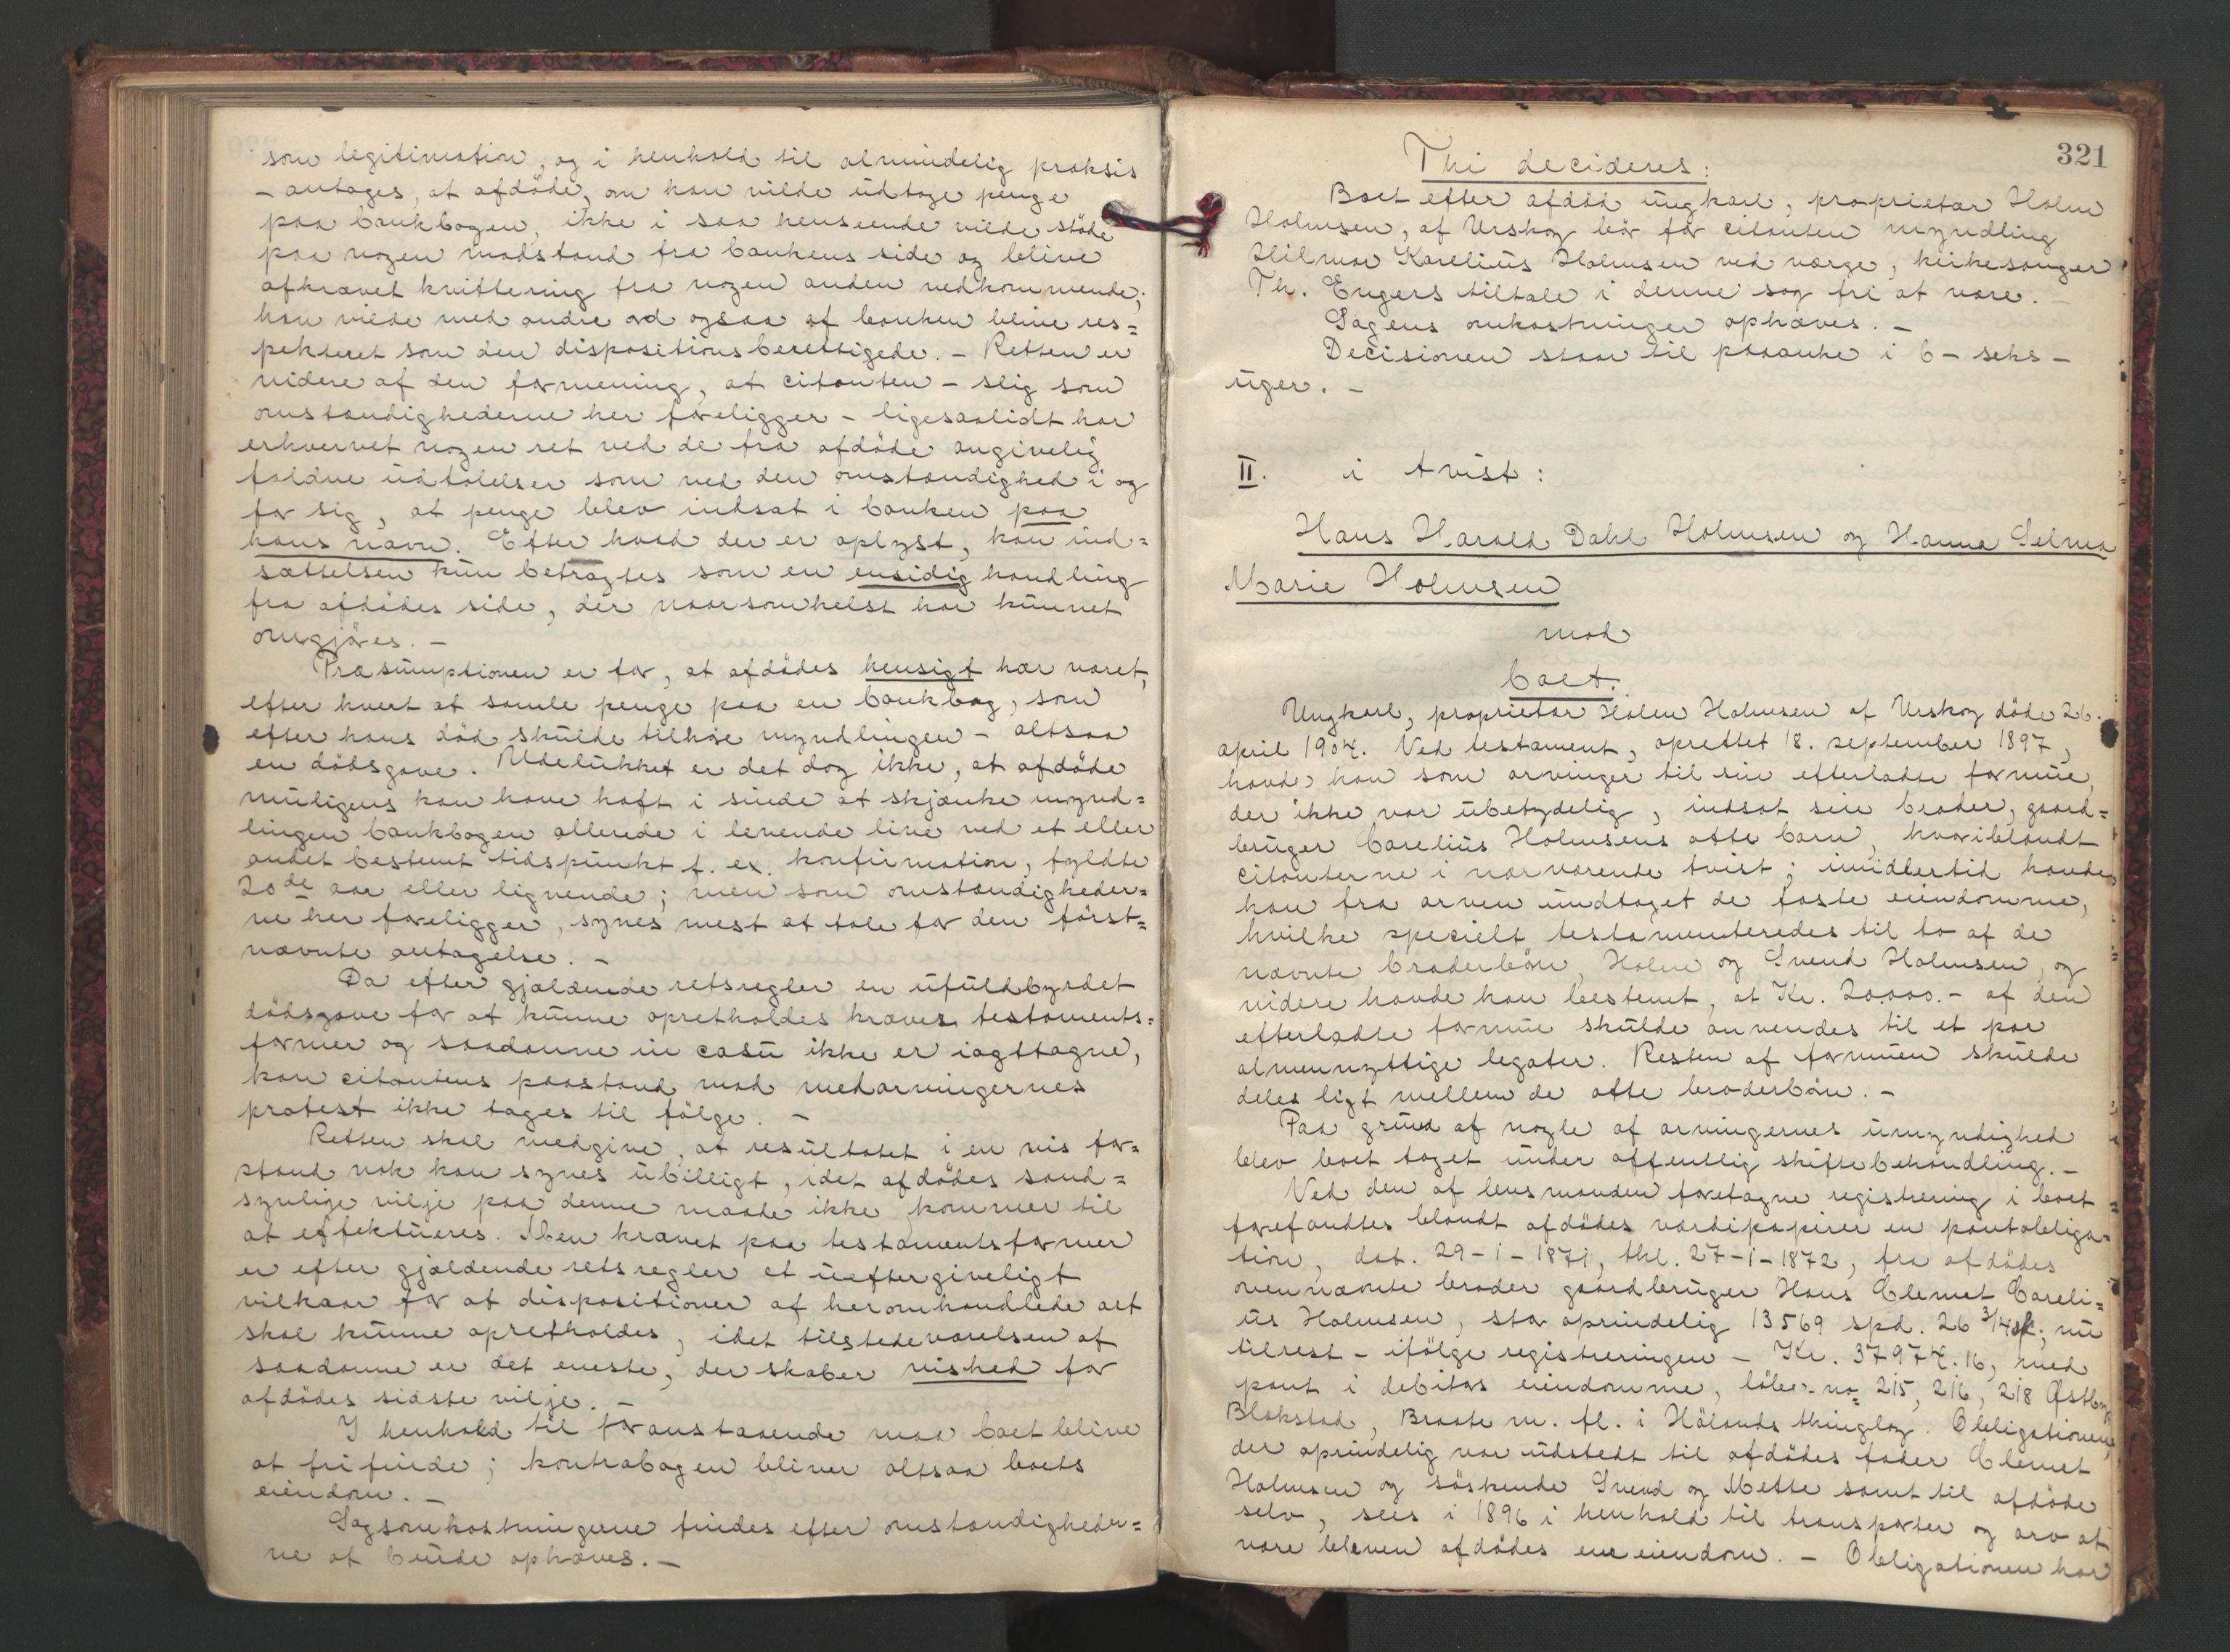 som legitimation, og i henhold til almindelig praksis
– antages, at afdöde, om han vilde udtage penge
paa bankbogen, ikke i saa henseende vilde støde
paa nogen modstand fra bankens side og blive
afkrævet kvittering fra nogen anden vedkommende;
han vilde med andre ord ogsaa af banken blive res=
pekteret som den dispositionsberettigede. – Retten er
videre af den formening, at citanten – slig som
omstændighederne her foreligger – ligesaalidt har
erhvervet nogen ret ved de fra afdöde angivelig
faldne udtalelser som ved den omstændighed i og
for sig, at penge blev indsat i banken paa
hans navn. Efter hvad der er oplyst, kan ind=
sættelsen kun betragtes som en ensidig handling
fra afdödes side, der naarsomhelst har kunnet
omgjöres. –
Præsumptionen er for, at afdödes hensigt har været,
efter hvert at samle penge paa en bankbog, som
efter hans död skulde tilhöre myndlingen – altsaa
en dödsgave. Udelukket er det dog ikke, at afdöde
muligens kan have haft i sinde at skjænke mynd=
lingen bankbogen allerede i levende live ved et eller
andet bestemt tidspunkt f. ex. konfirmation, fyldte
20de aar eller lignende; men som omstændigheder=
ne her foreligger, synes mest at tale for den först=
nævnte antagelse. –
Da efter gjældende retsregler en ufuldbyrdet
dödsgave for at kunne opretholdes kræver testaments=
former og saadanne in casu ikke er iagttagne,
kan citantens paastand mod medarvingernes
protest ikke tages til fölge. –
Retten skal medgive, at resultatet i en vis for=
stand nok kan synes ubilligt, idet afdödes sand=
synlige vilje paa denne maade ikke kommer til
at effektueres. Men kravet paa testamentsformer
er efter gjældende retsregler et ueftergiveligt
vilkaar for at dispositioner af heromhandlede art
skal kunne opretholdes, idet tilstedeværelsen af
saadanne er det eneste, der skaber vished for
afdödes sidste vilje. –
I henhold til foranstaaende maa boet blive
at frifinde; kontrabogen bliver altsaa boets
eiendom. –
Sagsomkostningerne findes efter omstændigheder=
ne at burde ophæves. –
321
Thi decideres:
Boet efter afdöd ungkarl, proprietær Holm
Holmsen, af Urskog bör for citanten myndling
Hilmar Karelius Holmsen ved værge, kirkesanger
Th. Engers tiltale i denne sag fri at være. –
Sagens omkostninger ophæves. –
Decisionen staar til paaanke i 6 – seks –
uger. –
II. i tvist:
Hans Harald Dahl Holmsen og Hanna Selma
Marie Holmsen
mod
boet.
Ungkarl, proprietær Holm Holmsen af Urskog döde 26.
april 1904. Ved testament, oprettet 18. september 1897,
havde han som arvinger til sin efterladte formue,
der ikke var ubetydelig, indsat sin broder, gaard=
bruger Carelius Holmsens otte barn, hvoriblandt
citanterne i nærværende tvist; imidlertid havde
han fra arven undtaget de faste eiendomme,
hvilke specielt testamenteredes til to af de
nævnte broderbörn, Holm og Svend Holmsen, og
videre havde han bestemt, at Kr. 20.000.– af den
efterladte formue skulde anvendes til et par
almennyttige legater. Resten af formuen skulde
deles ligt mellem de otte broderbörn. –
Paa grund af nogle af arvingernes umyndighed
blev boet taget under offentlig skiftebehandling. –
Ved den af lensmanden foretagne registrering i boet
forefandtes blandt afdödes værdipapirer en pantobliga=
tion, dat. 29-1-1871, thl. 27-1-1872, fra afdödes
ovennævnte broder gaardbruger Hans Clemet Careli=
us Holmsen, stor oprindelig 13569 spd. 26 3/4 sk; nu
tilrest – ifölge registreringen – Kr. 37974.16, med
pant i debitors eiendomme, löbe-no= 215, 216, 218 Østby
Blakstad, Braate m. fl. i Hölands thinglag. Obligationen,
der oprindelig var udstedt til afdödes fader Clemet
Holmsen og söskende Svend og Mette samt til afdöde
selv, sees i 1896 i henhold til transporter og arv at
være bleven afdödes ene eiendom. – Obligationen har